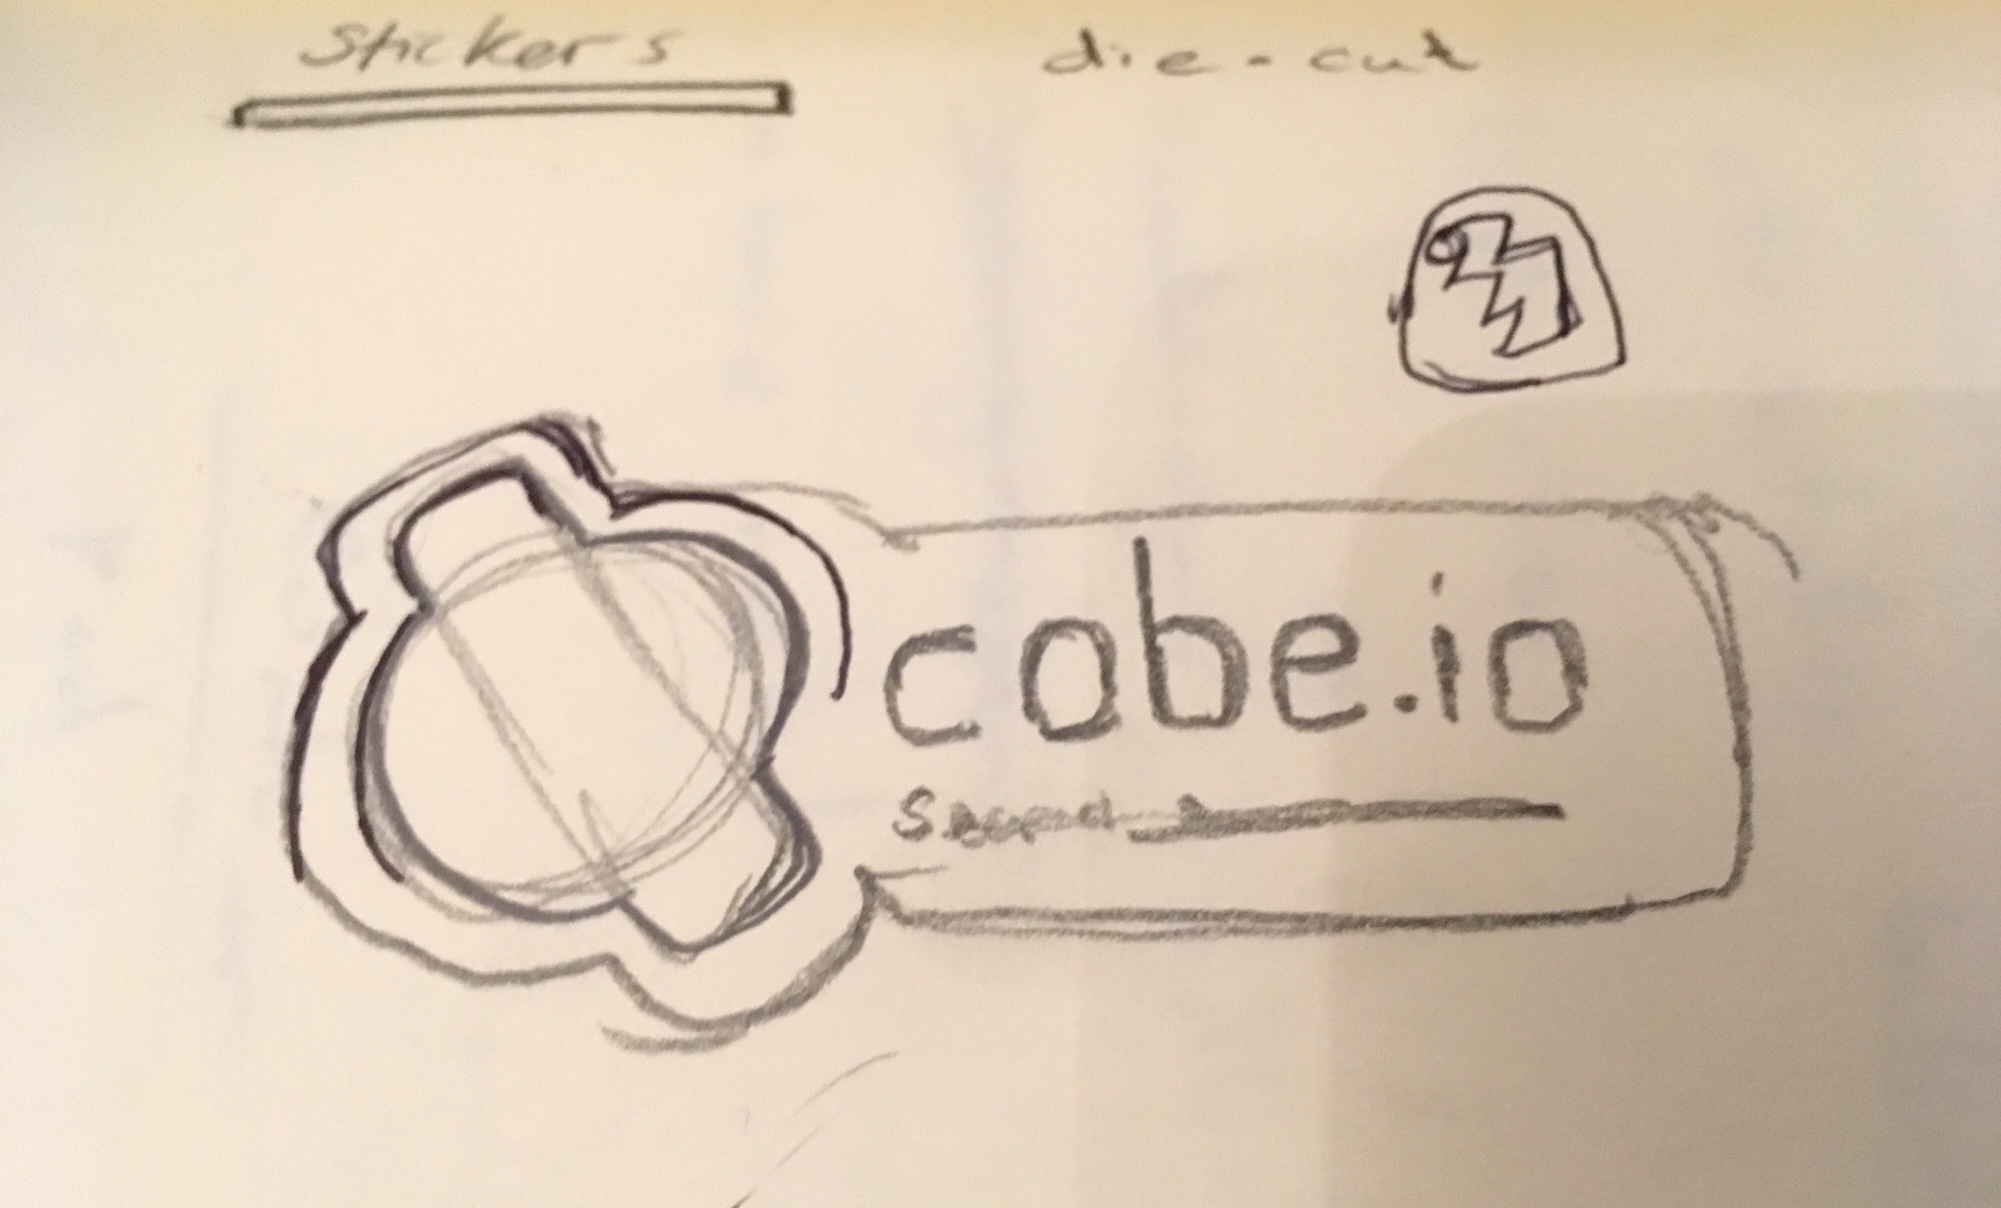 Stickers die-cut
cobe.io